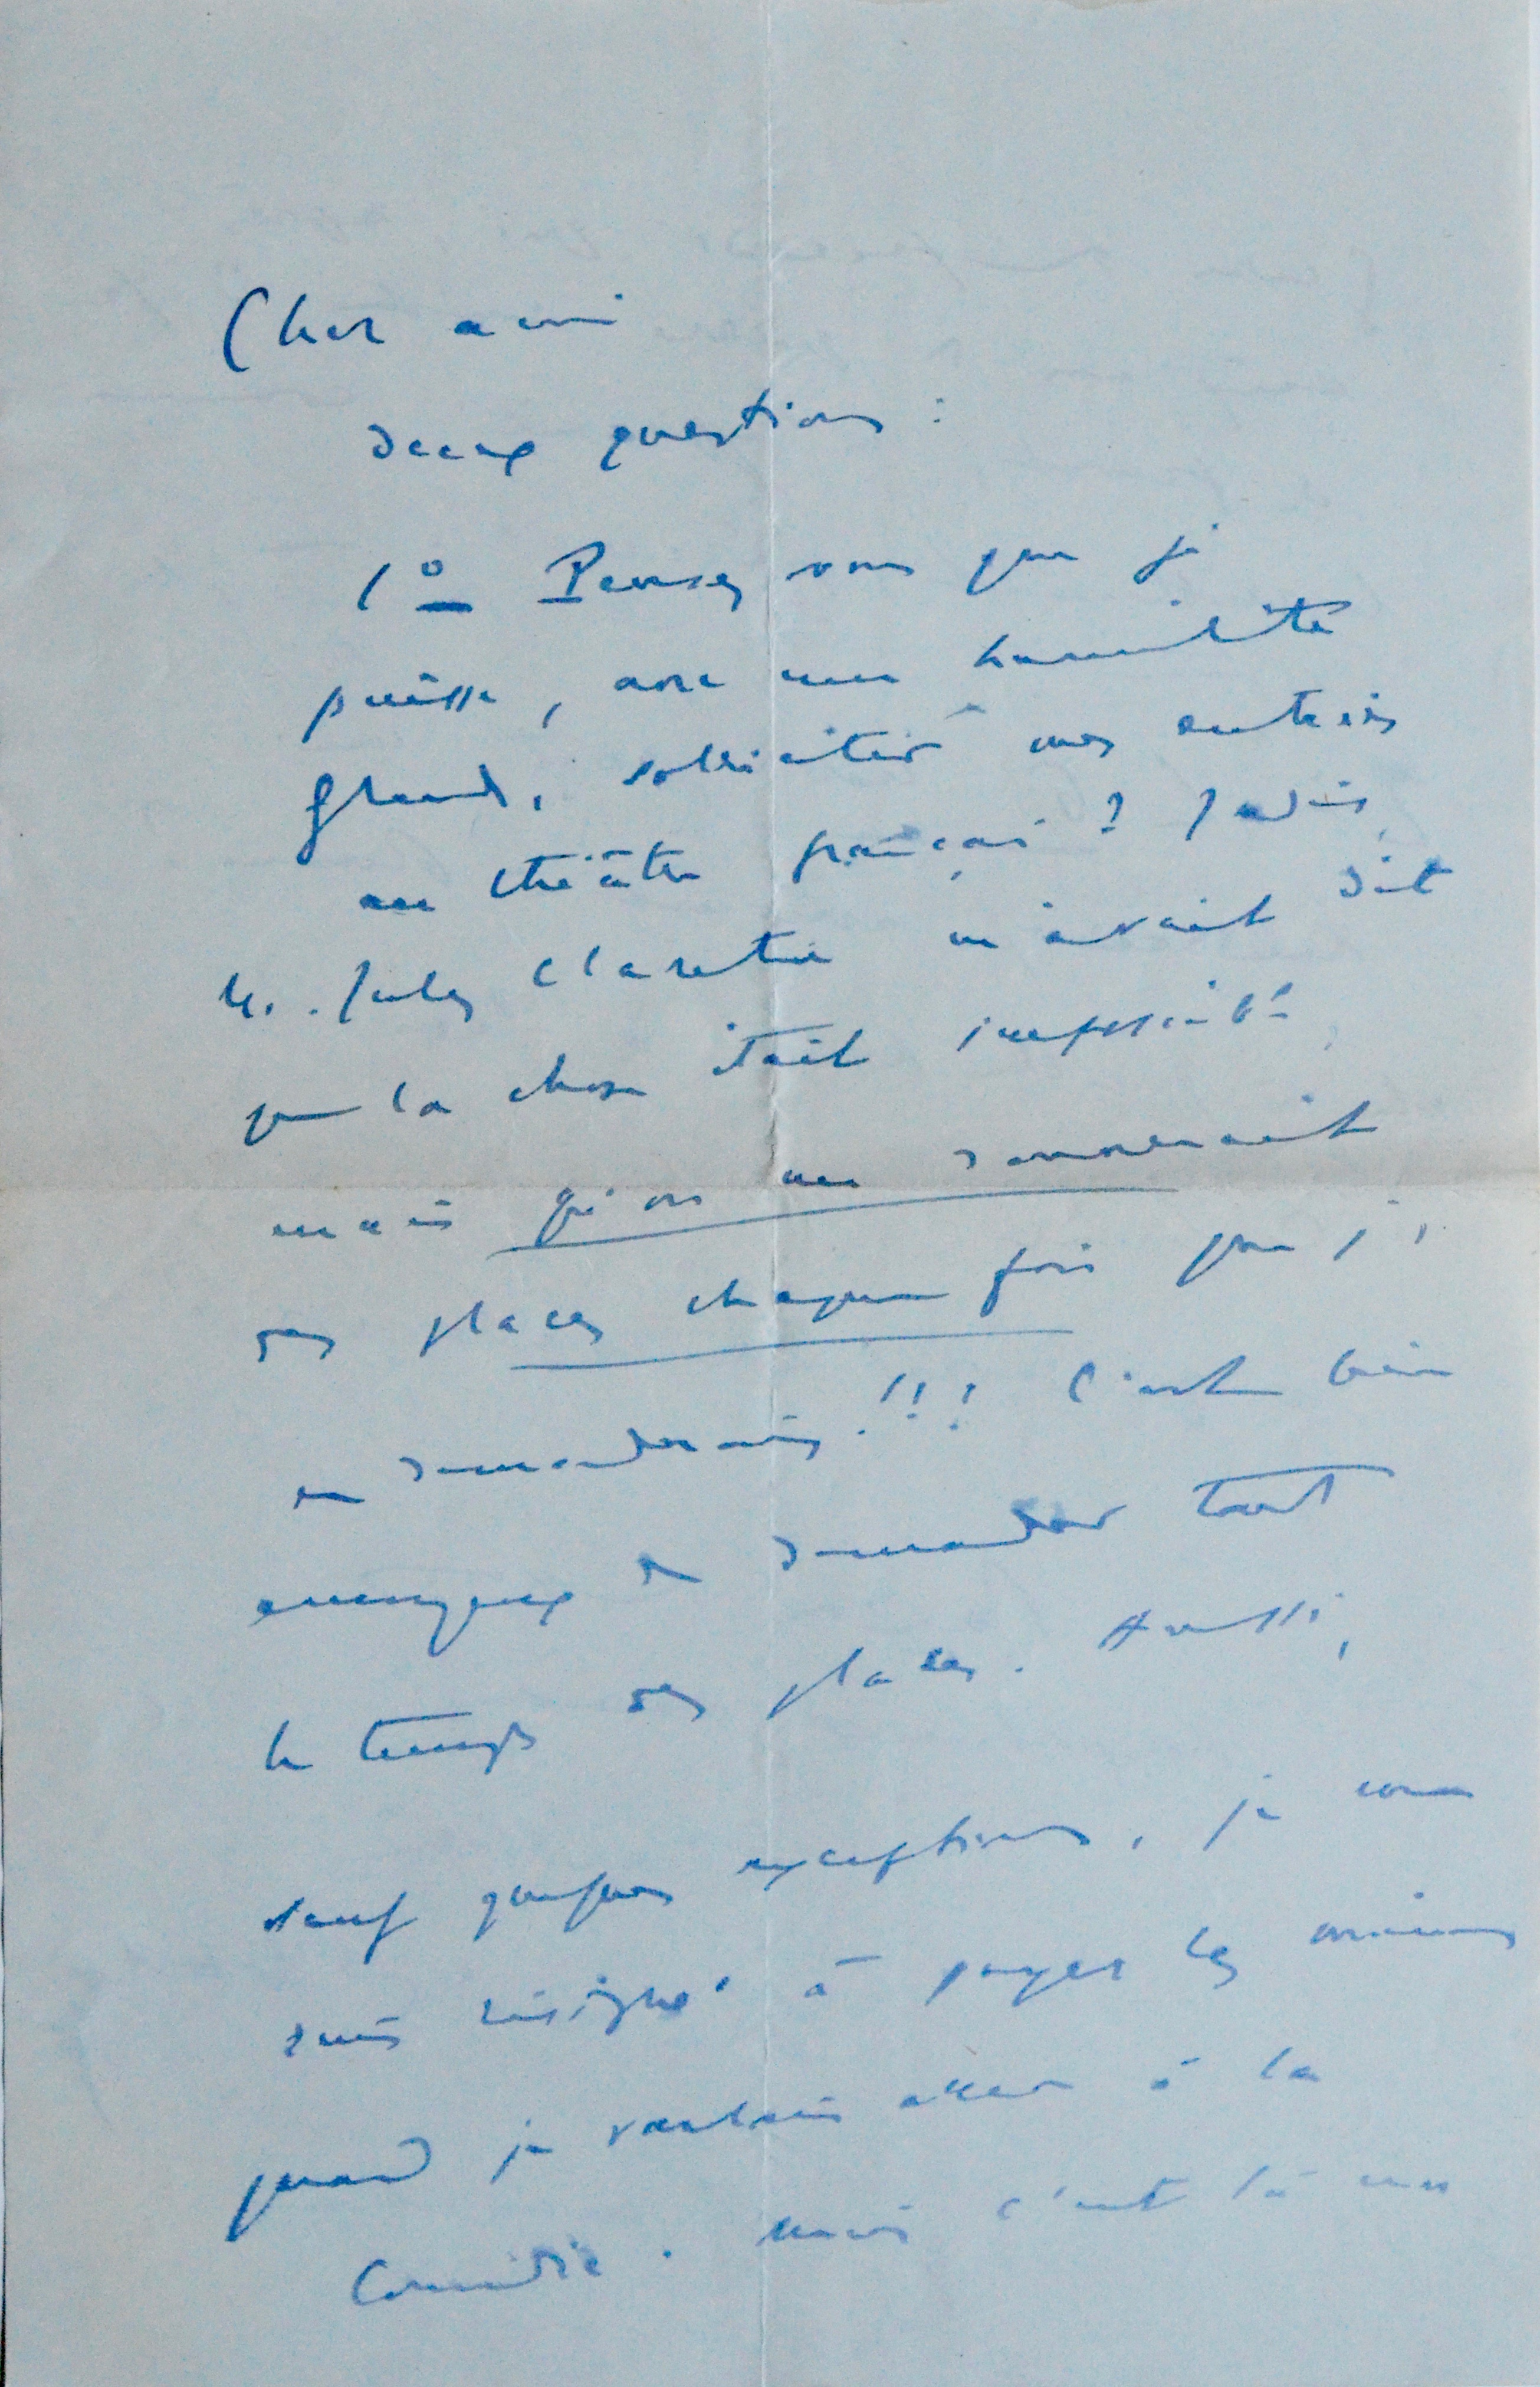 Cher ami
deux questions :
1º Pensez vous que je
puisse, avec une humilité
grande, solliciter mes entrées
au théâtre français ? Jadis,
M. Jules Claretie m'avait dit
que la chose était impossible
mais qu'on me donnerait
des places chaque fois que j'
en demanderais !!! C'est bien
ennuyeux de demander tout
le temps des places. Aussi,
sauf quelques exceptions, je me
suis résigné à payer les miennes
quand je voulais aller à la
Comédie. Mais c'est là une